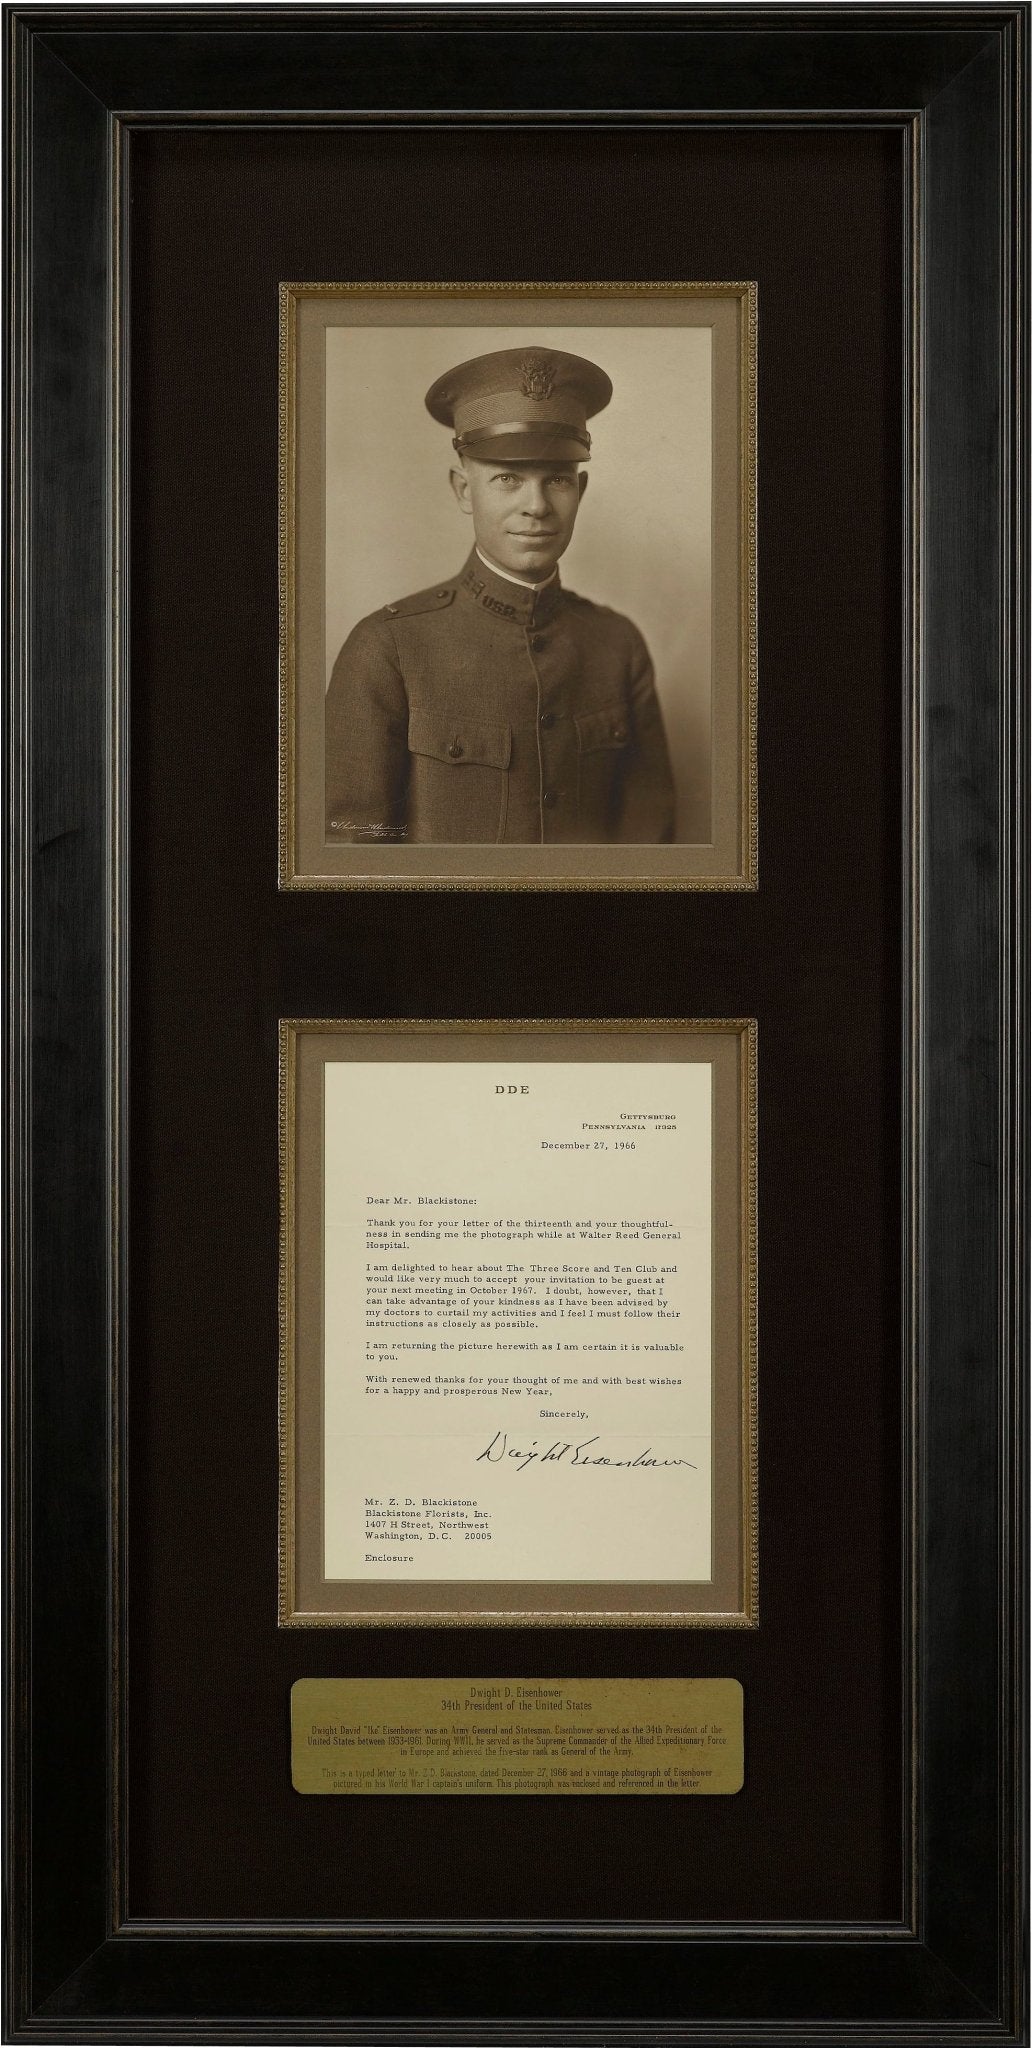 U.S.R.
DDE
GETTYSBURG
PENNSYLVANIA 17325
December 27, 1966
Dear Mr. Blackistone:
Thank you for your letter of the thirteenth and your thoughtful-
ness in sending me the photograph while at Walter Reed General
Hospital.
I am delighted to hear about The Three Score and Ten Club and
would like very much to accept your invitation to be guest at
your next meeting in October 1967. I doubt, however, that I
can take advantage of your kindness as I have been advised by
my doctors to curtail my activities and I feel I must follow their
instructions as closely as possible.
I am returning the picture herewith as I am certain it is valuable
to you.
With renewed thanks for your thought of me and with best wishes
for a happy and prosperous New Year,
Sincerely,
Dwight Eisenhower
Mr. Z. D. Blackistone
Blackistone Florists, Inc.
1407 H Street, Northwest
Washington, D.C. 20005
Enclosure
Dwight D. Eisenhower
34th President of the United States
Dwight David "Ike" Eisenhower was an Army General and Statesman. Eisenhower served as the 34th President of the
United States between 1953-1961. During WWII, he served as the Supreme Commander of the Allied Expeditionary Force
in Europe and achieved the five-star rank as General of the Army.
This is a typed letter to Mr. Z.D. Blackistone, dated December 27, 1966 and a vintage photograph of Eisenhower
pictured in his World War I captain's uniform. This photograph was enclosed and referenced in the letter.